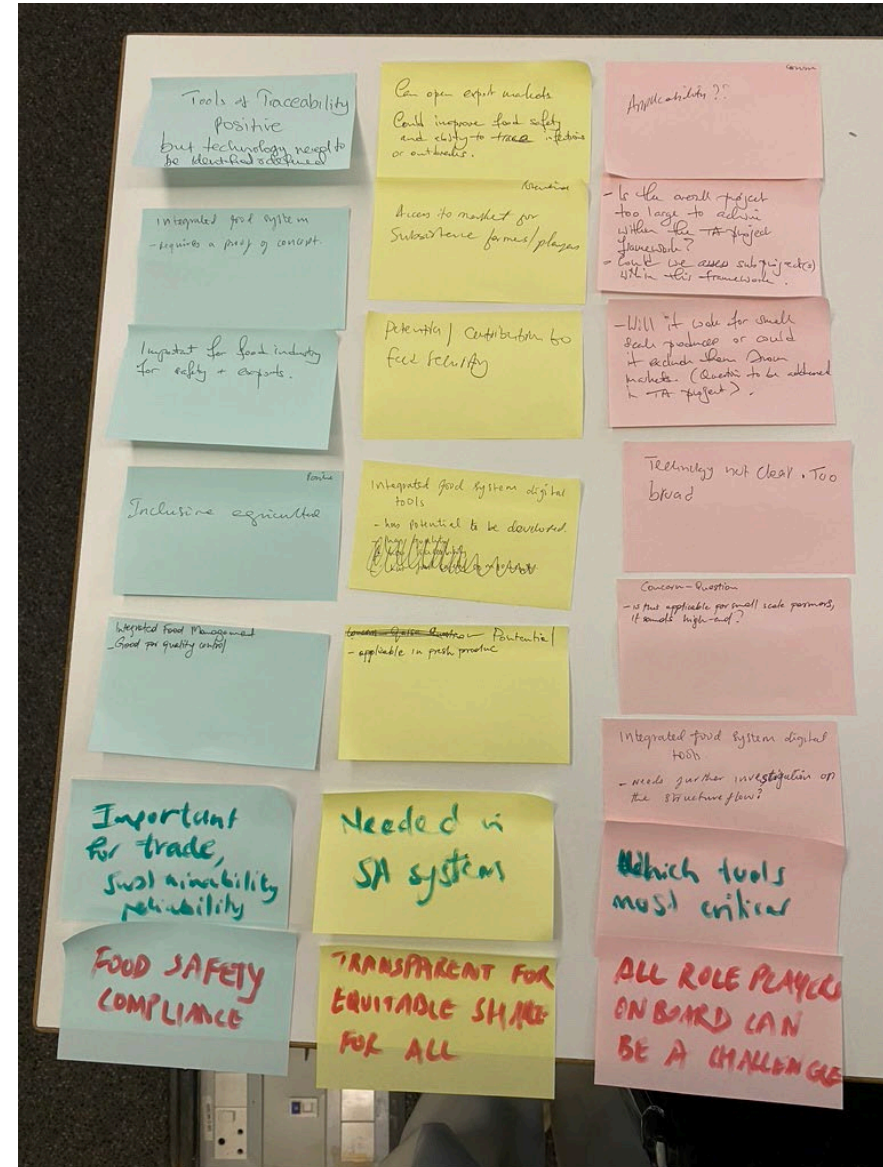 Tools of Traceability
Positive
but technology need to
be identified + defined
Integrated food system
- requires a proof of concept.
Important for food industry
for safety + exports.
Positive
Inclusive agriculture
Integrated Food Management
- Good for quality control
Important
for trade,
sustainability
reliability
FOOD SAFETY
COMPLIANCE
Can open export markets
Could improve food safety
and ability to trace infections
or outbreaks.
Access to market for
Subsistence farmers/players
Potential / Contribution to
food security
Integrated food system digital
tools
- has potential to be developed.
Pontential
- applicable in fresh produc
Needed in
SA systems
TRANSPARENT FOR
EQUITABLE SHARE
FOR ALL
Concern
Applicability??
- Is the overall project
too large to
within the TA project
framework?
- Could we assess subproject(s)
within this framework.
- Will it work for small
scale producers or could
it exclude them from
markets. (Question to be addressed
in TA project).
Technology not clear. Too
broad
Concern-Question
- is that applicable for small scale farmers,
it sounds high-end?
Integrated food system digital
tools
- needs further investigation on
the structure flow?
Which tools
most critical
ALL ROLE PLAYERS
ON BOARD CAN
BE A CHALLENGE